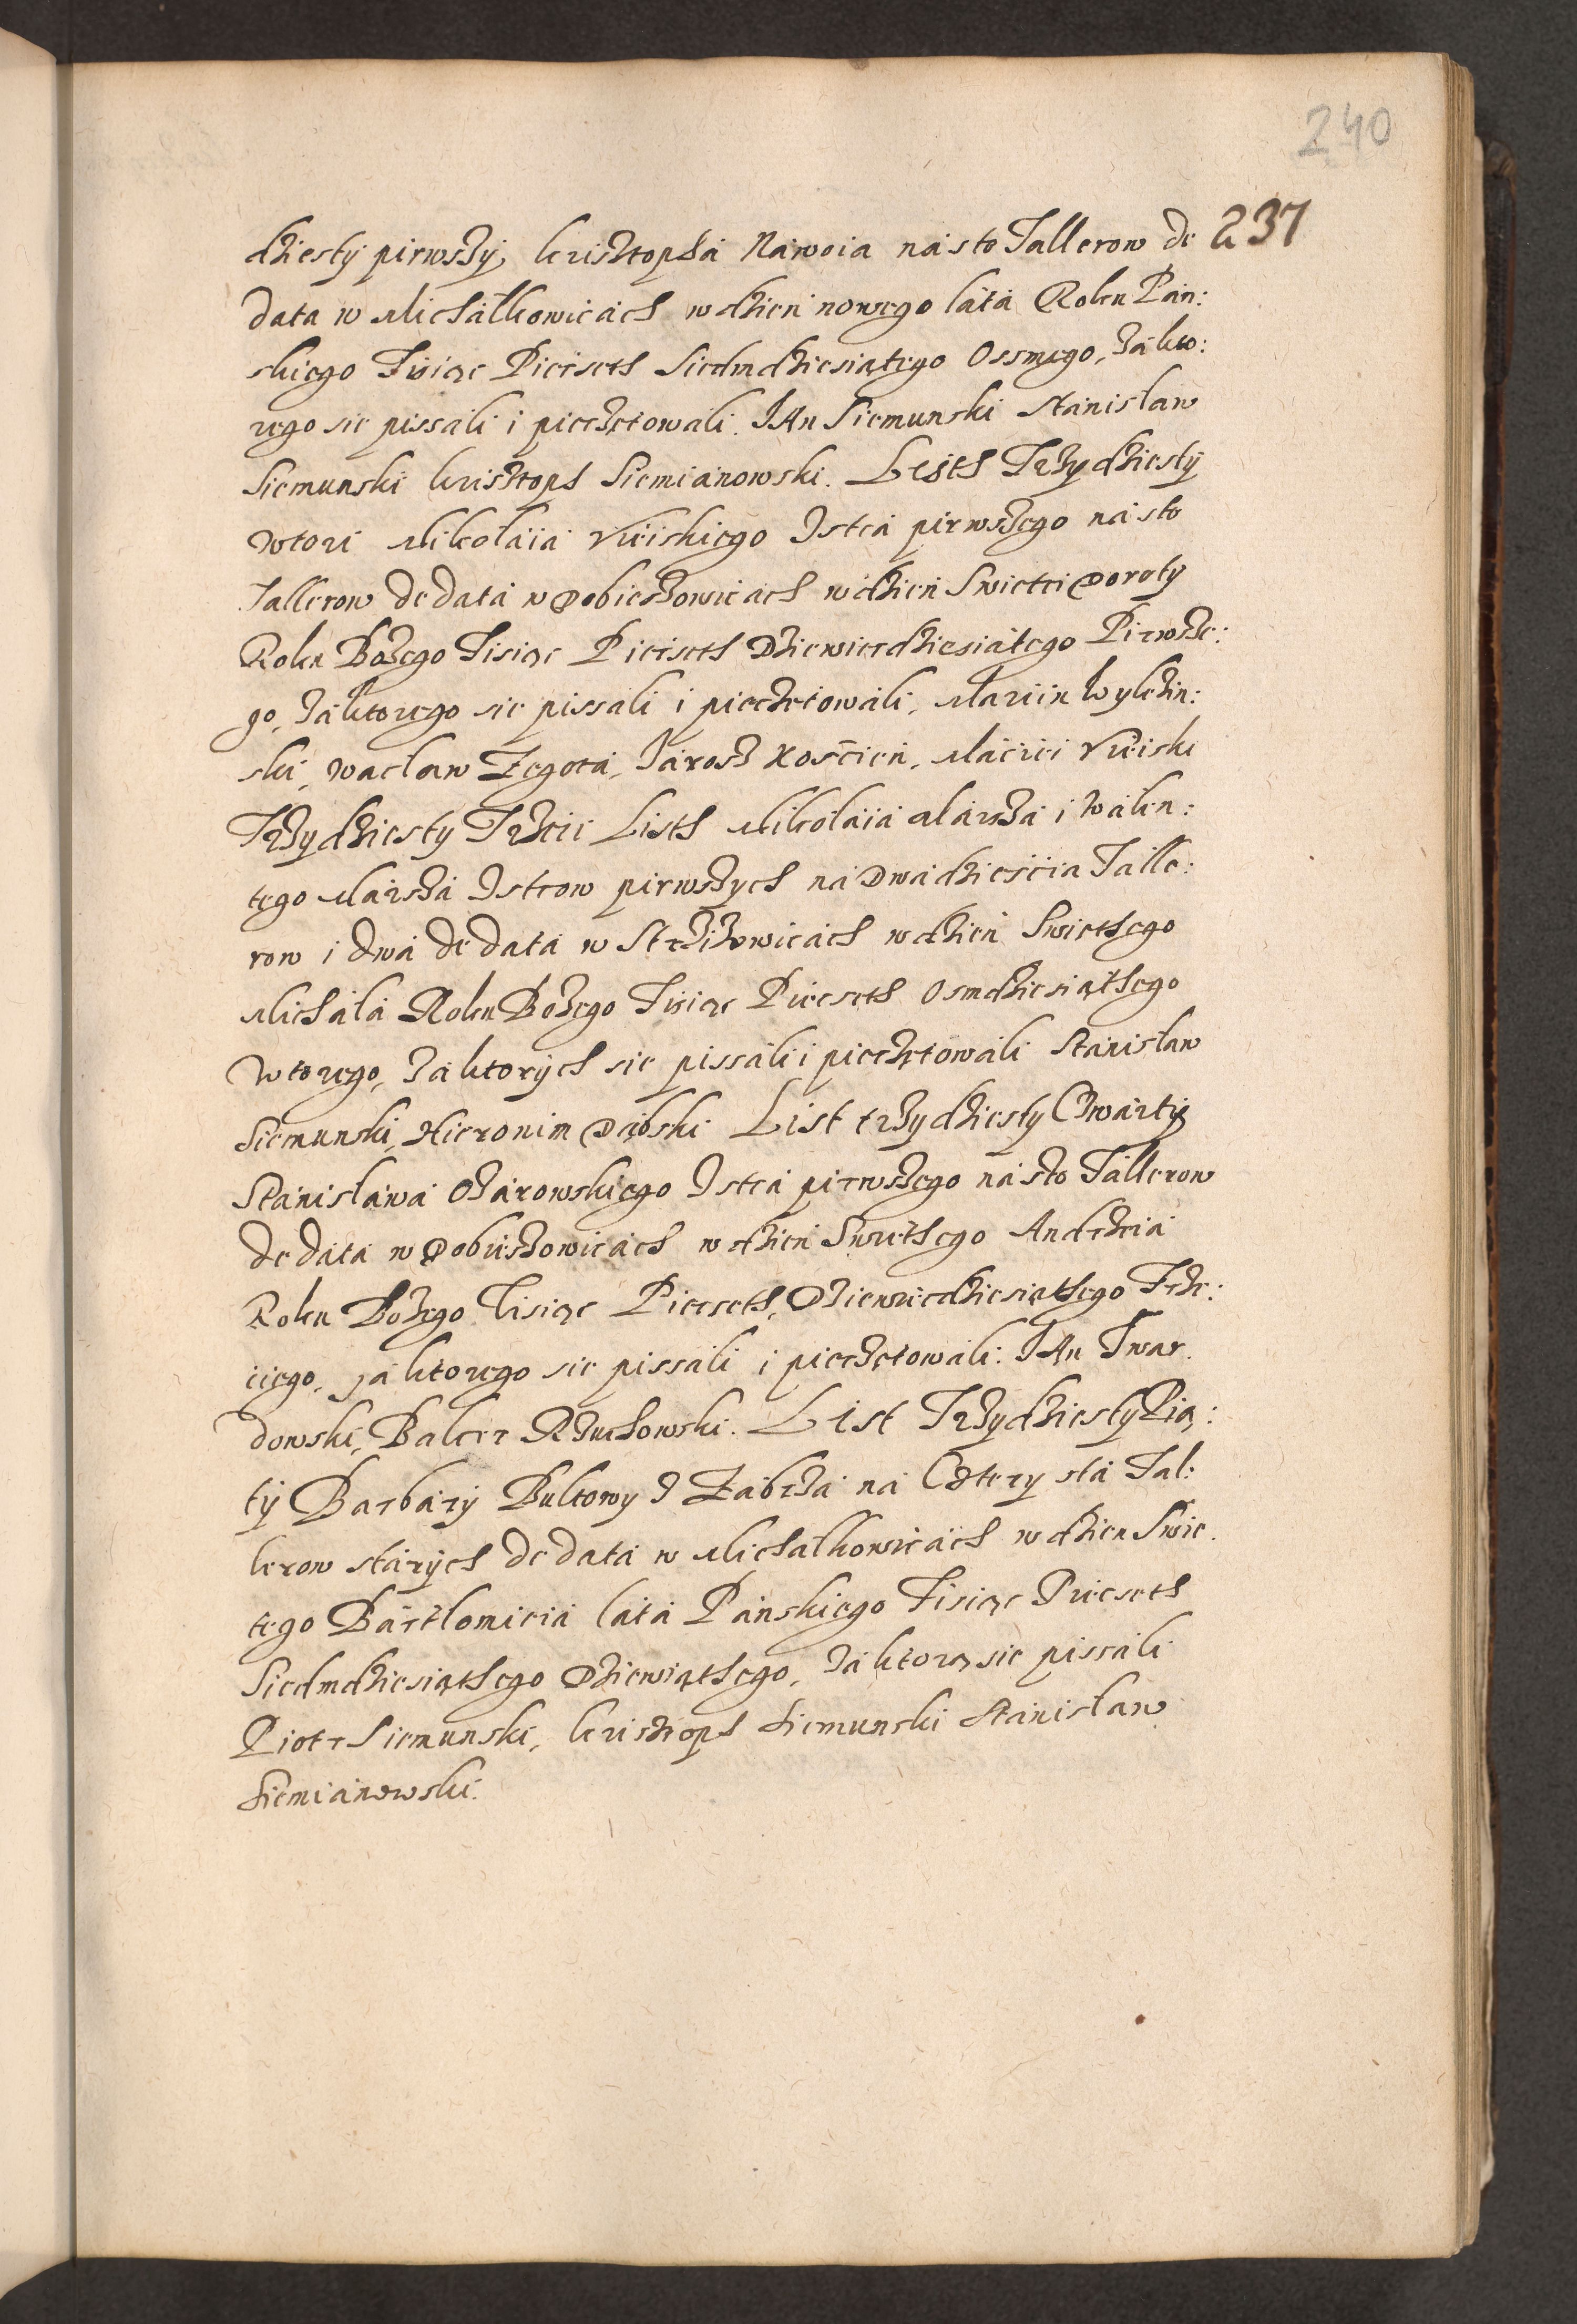 240
237
dziesty pirwszy, Krisztopha Nawoia na sto Tallerow de
data w Michalkowicach w dzien nowego lata Roku Pan:
skiego Tisiąc Piecseth Siedmdziesiątego Ossmego, Za kto:
rego sie pissali i pieczetowali. JAn Siemunski Stanislaw
Siemunski Krisztoph Siemianowski. Listh Trzydziesty
wtori Mikolaia Istca pirwszego na sto
Tallerow de data w Dobieszowicach w dzien Swietei Doroty
Roku Bozego Tisiąc Piecseth Dziewiecdziesiątego Pirwsze:
go, Za ktorego sie pissali i pieczetowali, Wylczin:
ski, Waclaw Zegota, Jarosz Koscien, Maciei
Trzydziesty Trzeci Listh Mikolaia Marsza i Walen:
tego Marsza Istcow pirwszych na Dwadziescia Talle:
row i dwa de data w Strzizowicach w dzien Swiethego
Michala Roku Bozego Tisiąc Piecseth Osmdziesiąthego
Wtorego, Za ktorych sie pissali i pieczetowali Stanislaw
Siemunski, Hieronim Dąbski List trzydziesty Czwarty
Stanislawa Ozarowskiego Istca pirwszego na sto Tallerow
de data w Dobieszowicach w dzien Swiethego Andrzeia
Roku Bozego Tisiąc Piecseth, Dziewiecdziesiąthego Trze:
ciego, za ktorego sie pissali i pieczetowali: JAn Twar
dowski, Balcer Rzuchowski. List Trzydziesty Pią:
ty Barbary Bulkowy z Zabrza na Cztery sta Tal:
lerow starych de data w Michalkowicach w dzien Swie
tego Bartlomieia lata Panskiego Tisiąc Piecseth
Siedmdziesiąthego Dziewiąthego, Za ktorą sie pissali
Piotr Siemunski, Krisztoph Siemunski Stanislaw
Siemianowski.